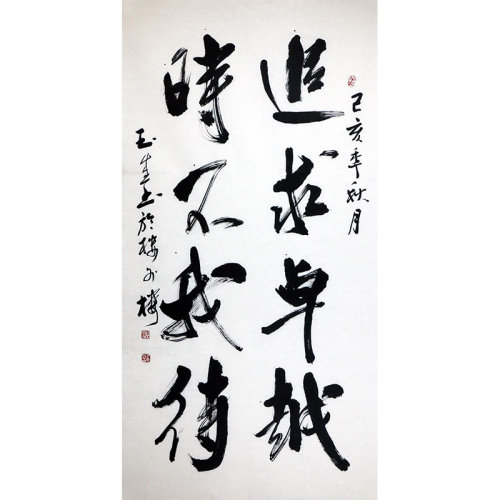 己亥年秋月
追求卓越
時不我待
玉生书於楼外樓